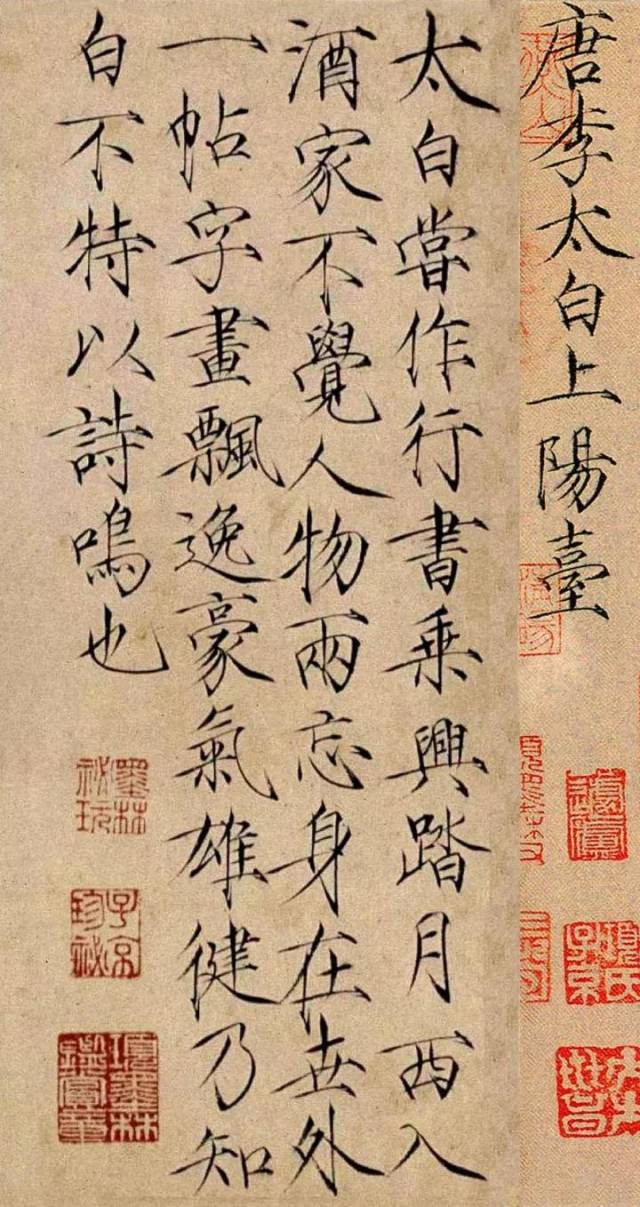 唐李太白上陽臺
太白嘗作行書乘興踏月西入
酒家不覺人物兩忘身在世外
一帖字畫飄逸豪氣雄健乃知
白不特以詩鳴也
墨林祕玩
子京珍祕
項墨林鑑賞章